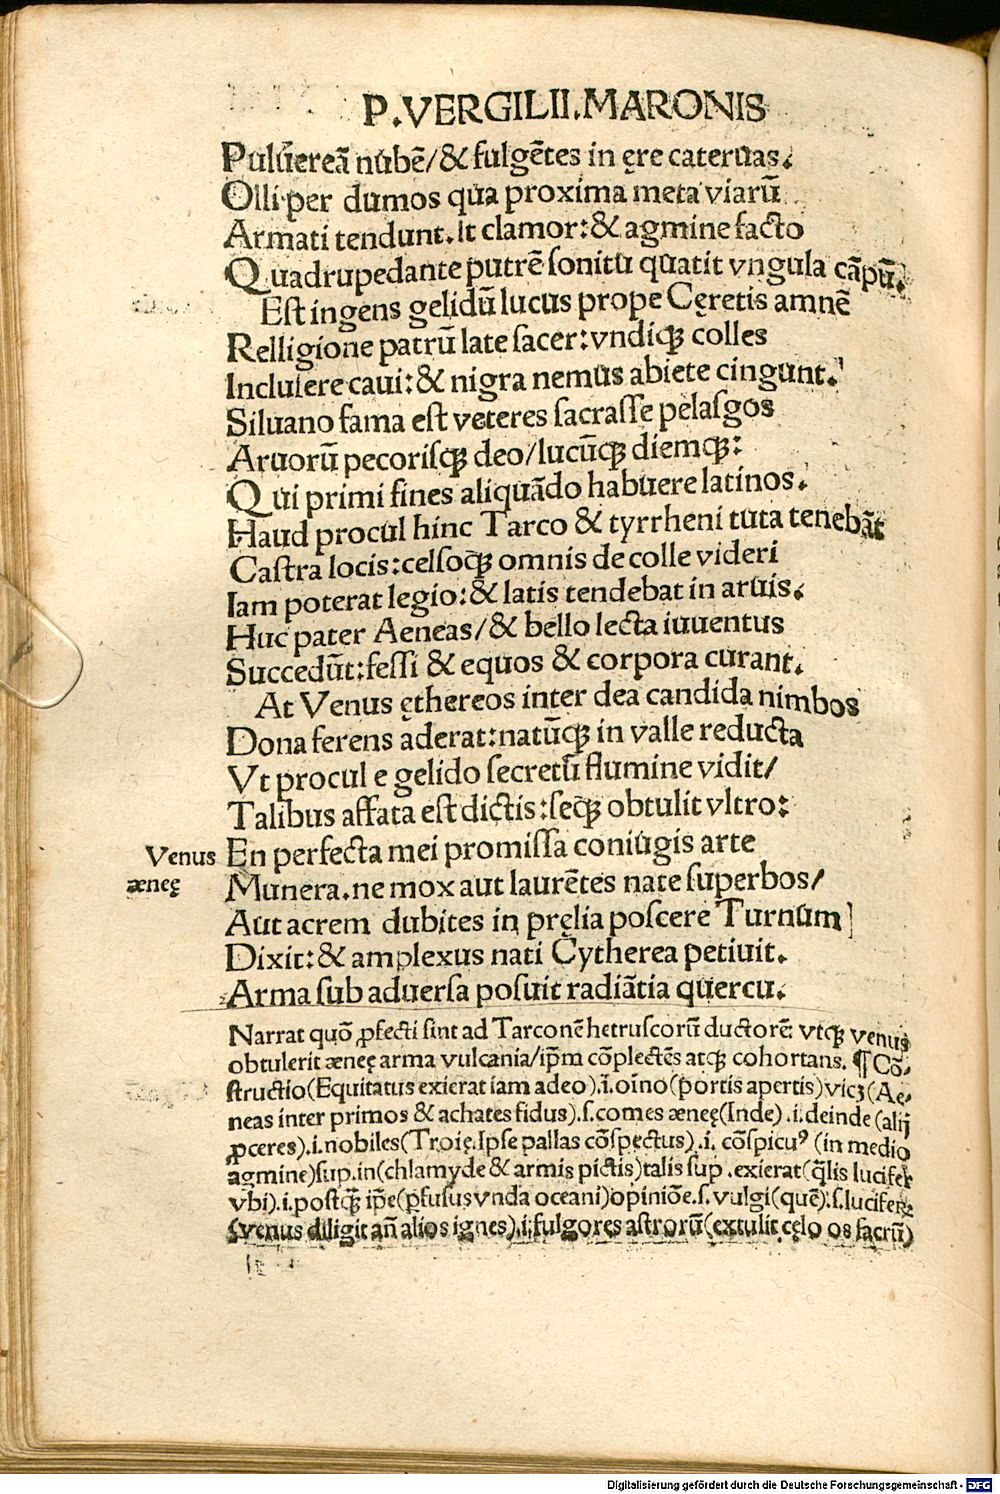 P.VERGILII.MARONIS
Puluereā nubē/& fulgētes in ęre cateruas.
Olli per dumos qua proxima meta viarū
Armati tendunt. It clamor: & agmine facto
Quadrupedante putrē sonitu quatit vngula cāpū.
Est ingens gelidū lucus prope Cęretis amnē
Relligione patrū late sacer: vndiqꝫ colles
Incluſere caui: & nigra nemus abiete cingunt.
Siluano fama est veteres sacraſſe pelaſgos
Aruorū pecoriſqꝫ deo/lucūqꝫ diemqꝫ:
Qui primi fines aliquādo habuere latinos.
Haud procul hinc Tarco & tyrrheni tuta tenebāt
Caſtra locis: celſoqꝫ omnis de colle videri
Iam poterat legio: & latis tendebat in aruis.
Huc pater Aeneas/& bello lecta iuuentus
Succedūt: feſſi & equos & corpora curant.
At Venus ęthereos inter dea candida nimbos
Dona ferens aderat: natūqꝫ in valle reducta
Vt procul e gelido ſecretū flumine vidit/
Talibus affata eſt dictis: ſeqꝫ obtulit vltro:
Venus En perfecta mei promiſſa coniugis arte
æneę Munera. ne mox aut laurētes nate ſuperbos/
Aut acrem dubites in pręlia poſcere Turnum
Dixit: & amplexus nati Cytherea petiuit.
Arma ſub aduerſa poſuit radiātia quercu.
Narrat quō ꝓfecti ſint ad Tarconē hetruſcorū ductorē: vtqꝫ venus
obtulerit æneę arma vulcania/ip̄m cōplectēs atqꝫ cohortans. ¶ Cō-
ſtructio(Equitatus exierat iam adeo).i.oīno(portis apertis)vicꝫ(Ae-
neas inter primos & achates fidus).ſ.comes æneę(Inde).i.deinde(alij
ꝓceres).i.nobiles(Troię. Ipſe pallas cōſpectus).i.cōſpicuꝰ(in medio
agmine)ſup.in(chlamyde & armis pictis)talis ſup.exierat(q̄lis lucifer
vbi).i.poſtqꝫ ip̄e(ꝑfuſus vnda oceani)opiniōe.ſ.vulgi(quē).ſ.luciferę
(venus diligit añ alios ignes).i.fulgores aſtrorū(extulit cęlo os ſacrū)
Digitalisierung gefördert durch die Deutsche Forschungsgemeinschaft - DFG